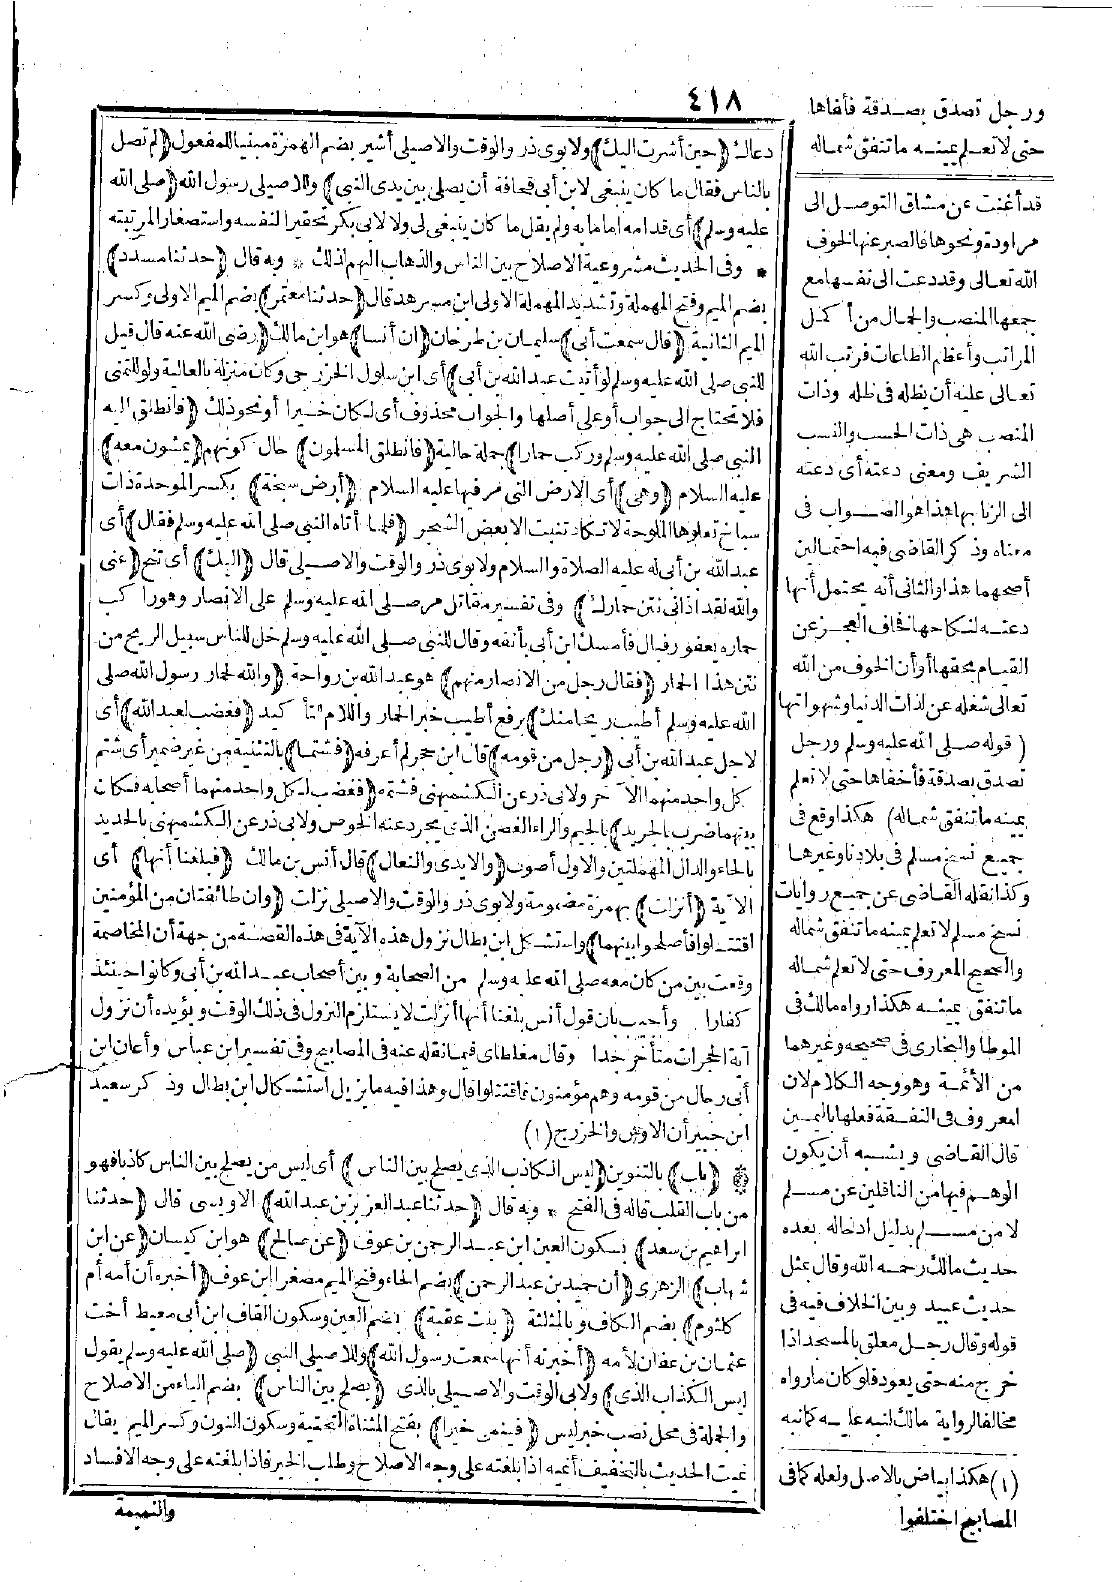 ٤١٨
دعاك (حين أشرت اليك) ولابوى ذر والوقت والاصيلي أشير بضم الهمزة مبنيا للمفعول (لم تصل
بالناس فقال ما كان ينبغي لابن أبي قحافة أن يصلي بين يدى النبي) وللاصيلي رسول الله (صلى الله
عليه وسلم) أى قدامه اماما به ولم يقل ما كان ينبغي لى ولا لابى بكر تحقيرا لنفسه واستصغارا لمرتبته
* وفى الحديث مشروعية الاصلاح بين الناس والذهاب اليهم لذلك * وبه قال (حدثنا مسدد)
بضم الميم وفتح المهملة وتشديد المهملة الاولى ابن مسرهد قال (حدثنا معتمر) بضم الميم الاولى وكسر
الميم الثانية (قال سمعت أبى) سليمان بن طرخان (ان أنسا) هو ابن مالك (رضى الله عنه قال قيل
للنبي صلى الله عليه وسلم لو أتيت عبد الله بن أبي) أى ابن سلول الخزرجى وكان منزله بالعالية ولو للتمنى
فلا تحتاج الى جواب أو على أصلها والجواب محذوف أى لكان خيرا أو نحو ذلك (فانطلق اليه
النبي صلى الله عليه وسلم وركب حمارا) جملة حالية (فانطلق المسلمون) حال كونهم (يمشون معه)
عليه السلام (وهى) أى الارض التى مر فيها عليه السلام (أرض سبخة) بكسر الموحدة ذات
سباخ تعلوها الملوحة لا تكاد تنبت الا بعض الشجر (فلما أتاه النبي صلى الله عليه وسلم فقال) أى
عبد الله بن أبى له عليه الصلاة والسلام ولابوى ذر والوقت والاصيلى قال (اليك) أى تنح (عنى
والله لقد آذانى نتن حمارك) وفى تفسير مقاتل مر صلى الله عليه وسلم على الانصار وهو راكب
حماره يعفور فبال فأمسك ابن أبى بأنفه وقال للنبي صلى الله عليه وسلم خل للناس سبيل الريح من
نتن هذا الحمار (فقال رجل من الانصار منهم) هو عبد الله بن رواحة (والله لحمار رسول الله صلى
الله عليه وسلم أطيب ريحا منك) برفع أطيب خبر الحمار واللام للتأكيد (فغضب لعبد الله) أى
لاجل عبد الله بن أبى (رجل من قومه) قال ابن حجر لم أعرفه (فشتما) بالتثنية من غير ضمير أى شتم
كل واحد منهما الآخر ولابى ذر عن الكشميهنى فشتمه (فغضب لكل واحد منهما أصحابه فكان
بينهما ضرب بالجريد) بالجيم والراء الغصن الذى يجرد عنه الخوص ولابى ذر عن الكشميهنى بالحديد
بالحاء والدال المهملتين والاول أصوب (والايدى والنعال) قال أنس بن مالك (فبلغنا أنها) أى
الآية (أنزلت) بهمزة مضمومة ولابوى ذر والوقت والاصيلى نزلت (وان طائفتان من المؤمنين
اقتتلوا فأصلحوا بينهما) واستشكل ابن بطال نزول هذه الآية فى هذه القصة من جهة أن المخاصمة
وقعت بين من كان معه صلى الله عليه وسلم من الصحابة وبين أصحاب عبد الله بن أبى وكانوا حينئذ
كفارا وأجيب بان قول أنس بلغنا أنها أنزلت لا يستلزم النزول فى ذلك الوقت ويؤيده أن نزول
آية الحجرات متأخر جدا وقال مغلطاى فيما نقله عنه فى المصابيح وفى تفسير ابن عباس وأعان ابن
أبى رجال من قومه وهم مؤمنون فاقتتلوا قال وهذا فيه ما يزيل استشكال ابن بطال وذكر سعيد
ابن جبير أن الاوس والخزرج (١)
(باب) بالتنوين (ليس الكاذب الذى يصلح بين الناس) أى ليس من يصلح بين الناس كاذبا فهو
من باب القلب قاله فى الفتح * وبه قال (حدثنا عبد العزيز بن عبد الله) الاويسى قال (حدثنا
ابراهيم بن سعد) بسكون العين ابن عبد الرحمن بن عوف (عن صالح) هو ابن كيسان (عن ابن
شهاب) الزهرى (أن حميد بن عبد الرحمن) بضم الحاء وفتح الميم مصغرا ابن عوف (أخبره أن أمه أم
كلثوم) بضم الكاف وبالمثلثة (بنت عقبة) بضم العين وسكون القاف ابن أبى معيط أخت
عثمان بن عفان لأمه (أخبرته أنها سمعت رسول الله) وللاصيلى النبي (صلى الله عليه وسلم يقول
ليس الكذاب الذى) ولابى الوقت والاصيلى بالذى (يصلح بين الناس) بضم الياء من الاصلاح
والجملة فى محل نصب خبر ليس (فينمى خيرا) بفتح المثناة التحتية وسكون النون وكسر الميم يقال
نميت الحديث بالتخفيف أنميه اذا بلغته على وجه الاصلاح وطلب الخير فاذا بلغته على وجه الافساد
والنميمة
ورجل تصدق بصدقة فأخفاها
حتى لا تعلم يمينه ما تنفق شماله
قد أغنت عن مشاق التوصل الى
مراودة ونحوها فالصبر عنها لخوف
الله تعالى وقد دعت الى نفسها مع
جمعها المنصب والجمال من أكمل
المراتب وأعظم الطاعات فرتب الله
تعالى عليه أن يظله فى ظله وذات
المنصب هى ذات الحسب والنسب
الشريف ومعنى دعته أى دعته
الى الزنا بها هذا هو الصواب فى
معناه وذكر القاضى فيه احتمالين
أصحهما هذا والثانى أنه يحتمل أنها
دعته لنكاحها فخاف العجز عن
القيام بحقها أو أن الخوف من الله
تعالى شغله عن لذات الدنيا وشهواتها
(قوله صلى الله عليه وسلم ورجل
تصدق بصدقة فأخفاها حتى لا تعلم
يمينه ما تنفق شماله) هكذا وقع فى
جميع نسخ مسلم فى بلادنا وغيرها
وكذا نقله القاضى عن جميع روايات
نسخ مسلم لا تعلم يمينه ما تنفق شماله
والصحيح المعروف حتى لا تعلم شماله
ما تنفق يمينه هكذا رواه مالك فى
الموطا والبخارى فى صحيحه وغيرهما
من الأئمة وهو وجه الكلام لان
المعروف فى النفقة فعلها باليمين
قال القاضى ويشبه أن يكون
الوهم فيها من الناقلين عن مسلم
لا من مسلم بدليل ادخاله بعده
حديث مالك رحمه الله وقال بمثل
حديث عبيد وبين الخلاف فيه فى
قوله وقال رجل معلق بالمسجد اذا
خرج منه حتى يعود فلو كان ما رواه
مخالفا لرواية مالك لنبه عليه كما نبه
(١) هكذا بياض بالاصل ولعله كما فى
المصابيح اختلفوا